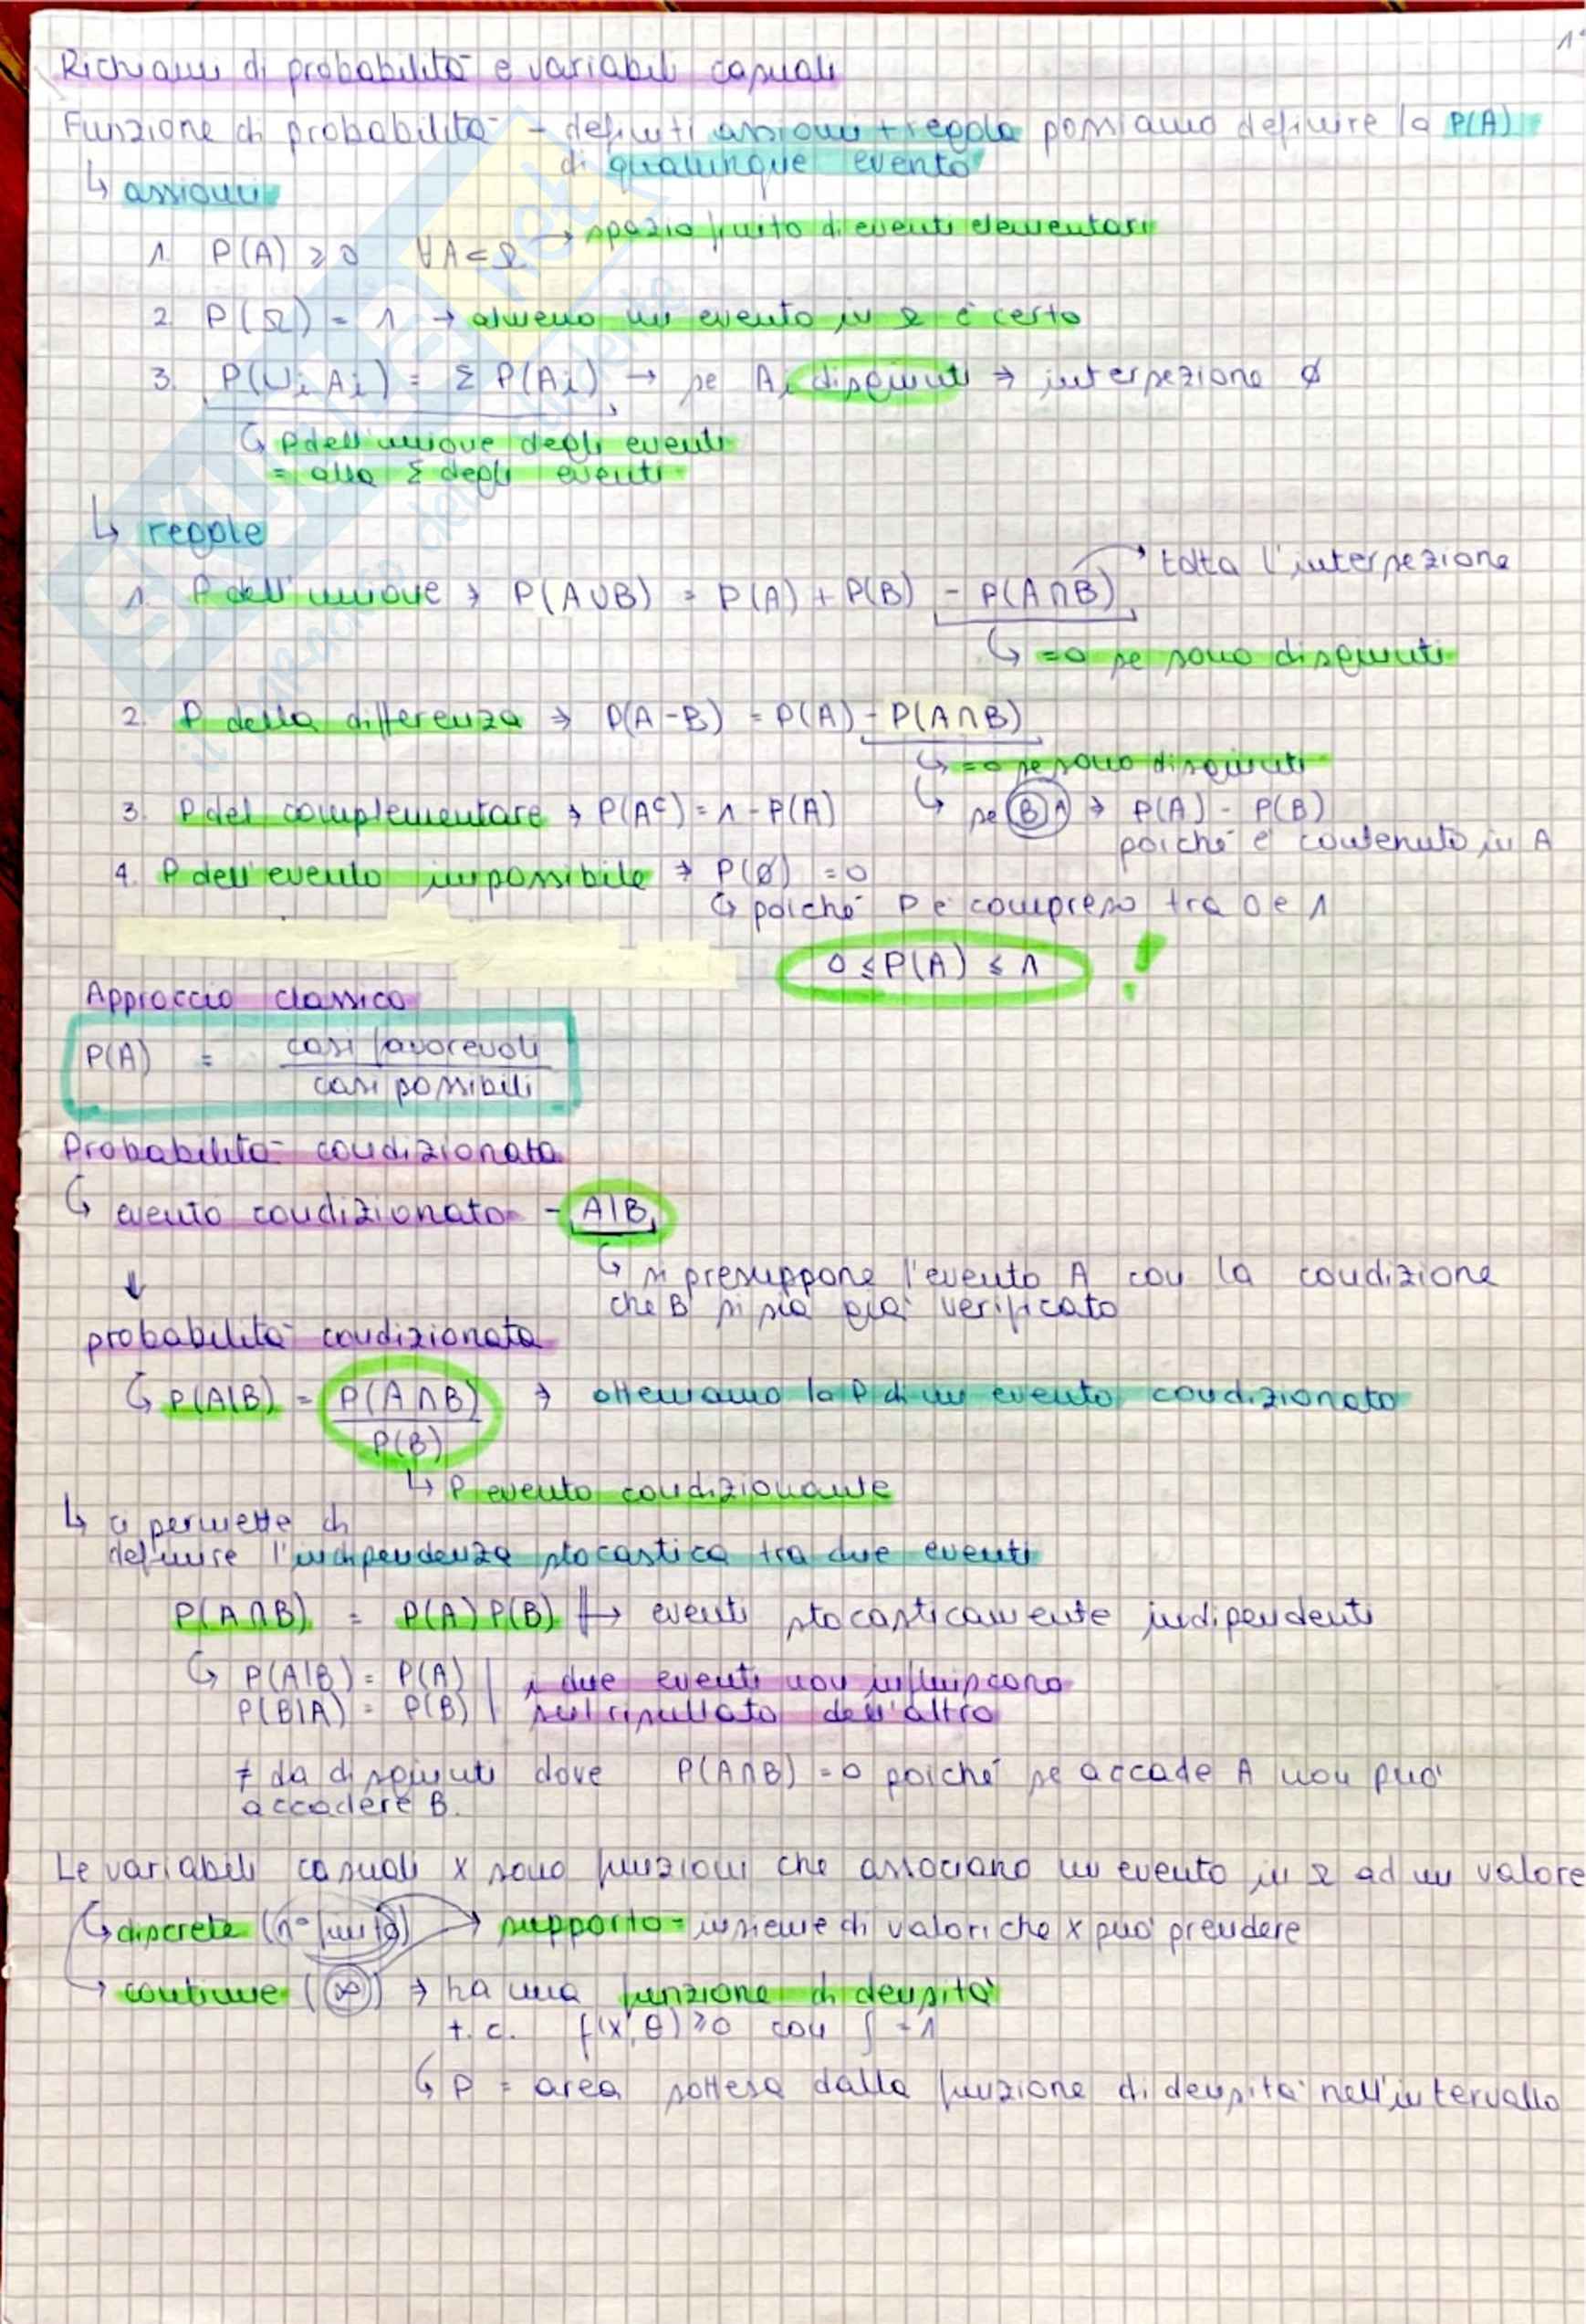 1°
Richiami di probabilità e variabili casuali
Funzione di probabilità - definiti assiomi + regola possiamo definire la P(A)
di qualunque evento
↳ assiomi
→ spazio finito di eventi elementari
1. P(A) ≥ 0 ∀A ⊂ Ω
2. P(Ω) = 1 → almeno un evento in Ω è certo
3. P(∪i Ai) = Σ P(Ai) → se Ai disgiunti → intersezione ∅
↳ P dell'unione degli eventi
= alla Σ degli eventi
↳ regole
→ tolta l'intersezione
1. P dell'unione → P(A∪B) = P(A) + P(B) - P(A∩B)
↳ =0 se sono disgiunti
2. P della differenza → P(A-B) = P(A) - P(A∩B)
↳ =0 se sono disgiunti
3. P del complementare → P(Aᶜ) = 1 - P(A) ↳ se (B)A → P(A) - P(B)
poiché è contenuto in A
4. P dell'evento impossibile → P(∅) = 0
↳ poiché P è compreso tra 0 e 1
0 ≤ P(A) ≤ 1 !
Approccio classico
P(A) = casi favorevoli
casi possibili
Probabilità condizionata
↳ evento condizionato - A|B
↳ si presuppone l'evento A con la condizione
↓
che B si sia già verificato
probabilità condizionata
↳ P(A|B) = P(A∩B) → otteniamo la P di un evento condizionato
P(B)
↳ P evento condizionante
↳ ci permette di
definire l'indipendenza stocastica tra due eventi
P(A∩B) = P(A) P(B) → eventi stocasticamente indipendenti
↳ P(A|B) = P(A) | i due eventi non influiscono
P(B|A) = P(B) | sul risultato dell'altro
≠ da disgiunti dove P(A∩B) = 0 poiché se accade A non può
accadere B.
Le variabili casuali x sono funzioni che associano un evento in Ω ad un valore
↳ discrete (n° finito) → supporto = insieme di valori che x può prendere
→ continue (∞) → ha una funzione di densità
t.c. f(x, θ) ≥ 0 con ∫ = 1
↳ P = area sottesa dalla funzione di densità nell'intervallo